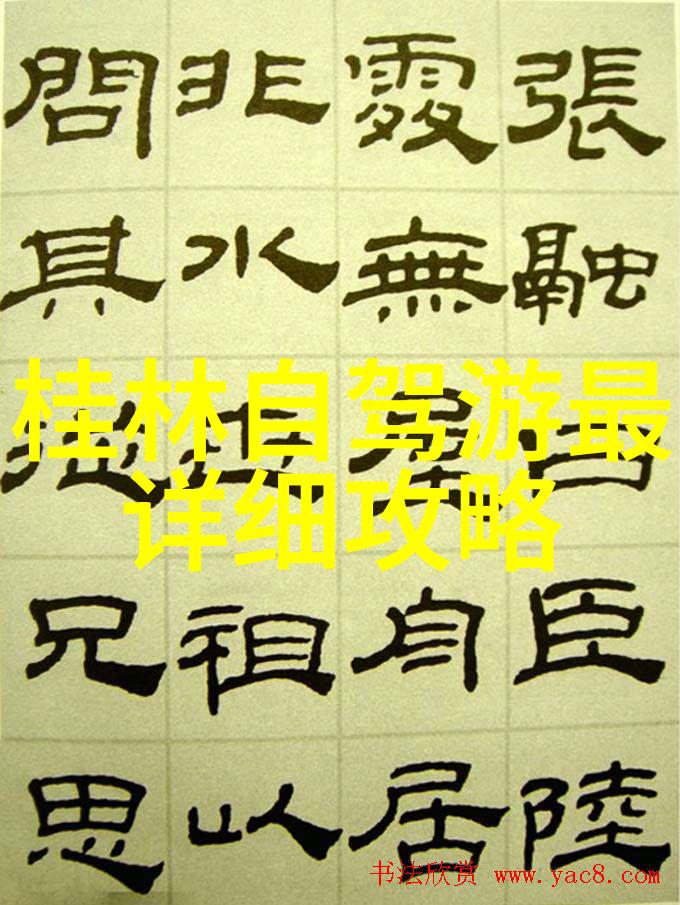 張融曰臣陸
處無屋舟居
非水世祖以
問其從兄思
桂林自驾游最
详细攻略
书法欣赏 www.yac8.com